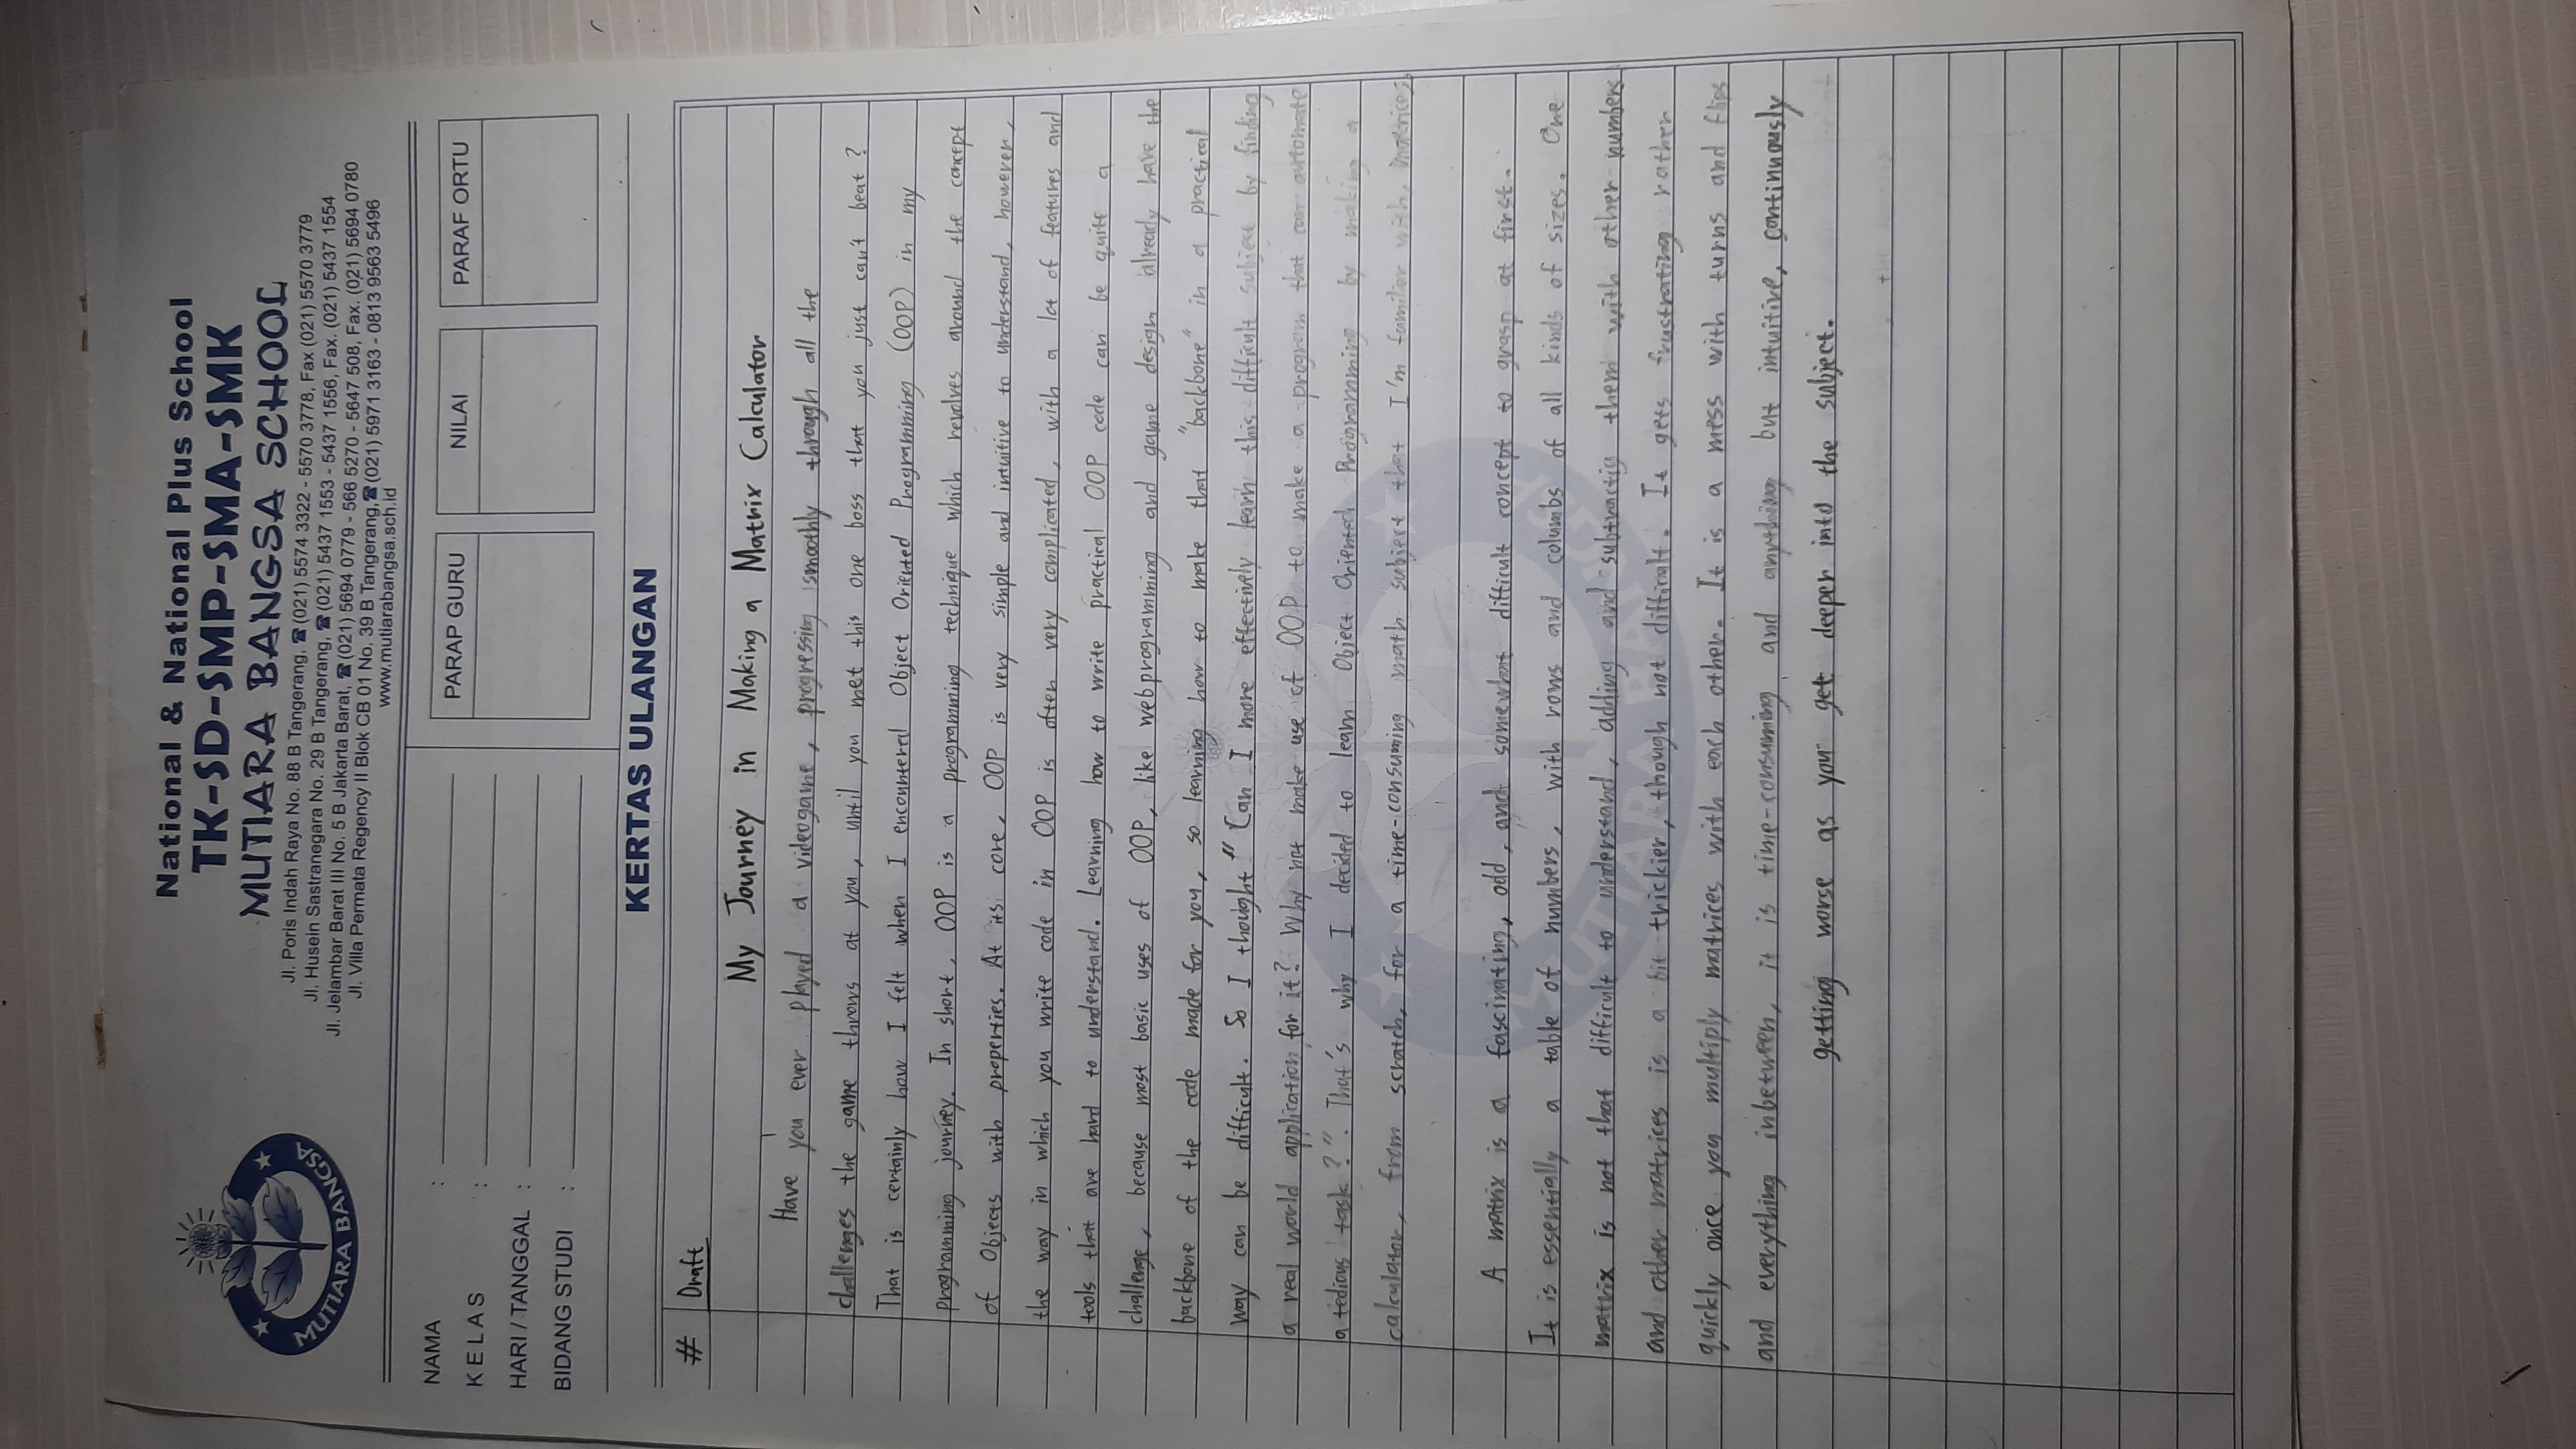 National & National Plus School
TK-SD-SMP-SMA-SMK
MUTIARA BANGSA SCHOOL
Jl. Poris Indah Raya No. 88 B Tangerang, ☎ (021) 5574 3322 - 5570 3778, Fax (021) 5570 3779
Jl. Husein Sastranegara No. 29 B Tangerang, ☎ (021) 5437 1553 - 5437 1556, Fax. (021) 5437 1554
Jl. Jelambar Barat III No. 5 B Jakarta Barat, ☎ (021) 5694 0779 - 566 5270 - 5647 508, Fax. (021) 5694 0780
Jl. Villa Permata Regency II Blok CB 01 No. 39 B Tangerang, ☎ (021) 5971 3163 - 0813 9563 5496
www.mutiarabangsa.sch.id
MUTIARA BANGSA
NAMA :
KELAS :
HARI / TANGGAL :
BIDANG STUDI :
PARAP GURU
NILAI
PARAF ORTU
KERTAS ULANGAN
# Draft
My Journey in Making a Matrix Calculator
Have you ever played a videogame, progressing smoothly through all the
challenges the game throws at you, until you met this one boss that you just can't beat?
That is certainly how I felt when I encountered Object Oriented Programming (OOP) in my
programming journey. In short, OOP is a programming technique which revolves around the concept
of Objects with properties. At its core, OOP is very simple and intuitive to understand, however,
the way in which you write code in OOP is often very complicated, with a lot of features and
tools that are hard to understand. Learning how to write practical OOP code can be quite a
challenge, because most basic uses of OOP, like webprogramming and game design already have the
backbone of the code made for you, so learning how to make that "backbone" in a practical
way can be difficult. So I thought "Can I more effectively learn this difficult subject by finding
a real world application for it? Why not make use of OOP to make a program that can automate
a tedious task?". That's why I decided to learn Object Oriented Programming by making a
calculator, from scratch, for a time-consuming math subject that I'm familiar with, matrices.
A matrix is a fascinating, odd, and somewhat difficult concept to grasp at first.
It is essentially a table of numbers, with rows and columbs of all kinds of sizes. One
matrix is not that difficult to understand, adding and subtractig them with other numbers
and other matrices is a bit trickier, though not difficult. It gets frustrating rather
quickly once you multiply matrices with each other. It is a mess with turns and flips
and everything inbetween, it is time-consuming and anything but intuitive, continuously
getting worse as you get deeper into the subject.
MUTIARA BANGSA